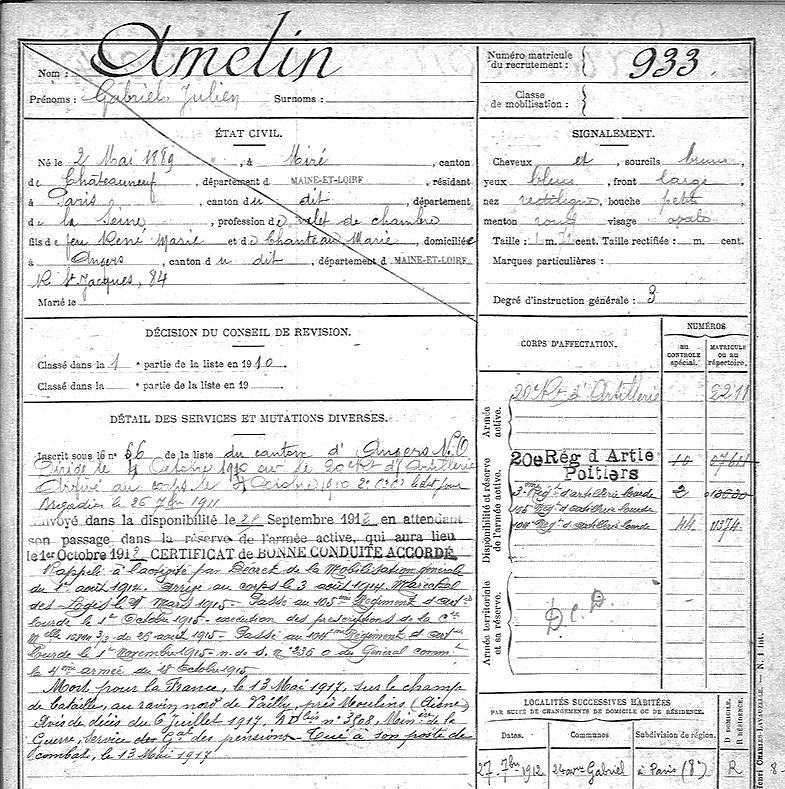 Nom : Amelin
Prénoms : Gabriel Julien Surnoms :
Numéro matricule
du recrutement : 933.
Classe
de mobilisation :
ÉTAT CIVIL.
Né le 2 Mai 1889, à Miré, canton
de Châteauneuf, département d MAINE-ET-LOIRE, résidant
à Paris, canton du dit, département
de la Seine, profession de valet de chambre
fils de feu René Marie et de Chanteau Marie, domiciliée
à Angers, canton du dit, département d MAINE-ET-LOIRE.
R St Jacques, 84
Marié le
SIGNALEMENT.
Cheveux et, sourcils bruns,
yeux bleus, front large
nez rectiligne, bouche petite
menton rond visage ovale
Taille : 1 m. cent. Taille rectifiée : m. cent.
Marques particulières :
Degré d'instruction générale : 3
DÉCISION DU CONSEIL DE REVISION.
Classé dans la 1 e partie de la liste en 1910.
Classé dans la e partie de la liste en 19
DÉTAIL DES SERVICES ET MUTATIONS DIVERSES.
Inscrit sous le n° 66 de la liste du canton d'Angers N.O
Dirigé le 4 Octobre 1910 sur le 20e Rt d'Artillerie
Arrivé au corps le Octobre 1910 2e C. Cr dudit jour
Brigadier le 26 7bre 1911
Envoyé dans la disponibilité le Septembre 1912 en attendant
son passage dans la réserve de l'armée active, qui aura lieu
le 1er Octobre 1912 CERTIFICAT de BONNE CONDUITE ACCORDÉ
Rappelé à l'activité par Décret de la Mobilisation générale
du 1er août 1914. Arrivé au corps le 3 août 1914. Maréchal
des Logis le Mars 1915 - Passé au 105ème Régiment d'artie
lourde le 1er Octobre 1915 - exécution des prescriptions de la Cre
Mlle du 26 août 1915 - Passé au 104ème Régiment d'artie
Lourde le 1er Novembre 1915 - n. de s. n° 236 O du Général commt
la 4ème armée du 18 Octobre 1915
Mort pour la France, le 13 Mai 1917, sur le champ
de bataille, au ravin nord de Vailly, près Moulins (Aisne)
Avis de décès du 6 Juillet 1917, n° 3508, Minère de la
Guerre, Service des Gal des pensions - Tué à son poste de
combat, le 13 Mai 1917
CORPS D'AFFECTATION.
NUMÉROS
au
CONTROLE
spécial.
MATRICULE
ou au
répertoire.
Armée
active.
20e Rt d'Artillerie 2211
Disponibilité et réserve
de l'armée active.
20e Rég d Artie 10 07611
Poitiers
3ème Régt d'artillerie lourde 2
105 Régt d'artillerie lourde
104 Régt d'artillerie lourde 44 11374
Armée territoriale
et sa réserve.
D.C.D.
LOCALITÉS SUCCESSIVES HABITÉES
PAR SUITE DE CHANGEMENTS DE DOMICILE OU DE RÉSIDENCE.
D DOMICILE.
R RÉSIDENCE.
Dates. Communes Subdivision de région.
27 7bre 1912 24 avnue Gabriel à Paris (8e) R
Henri CHARLES-LAVAUZELLE. — N. I int.